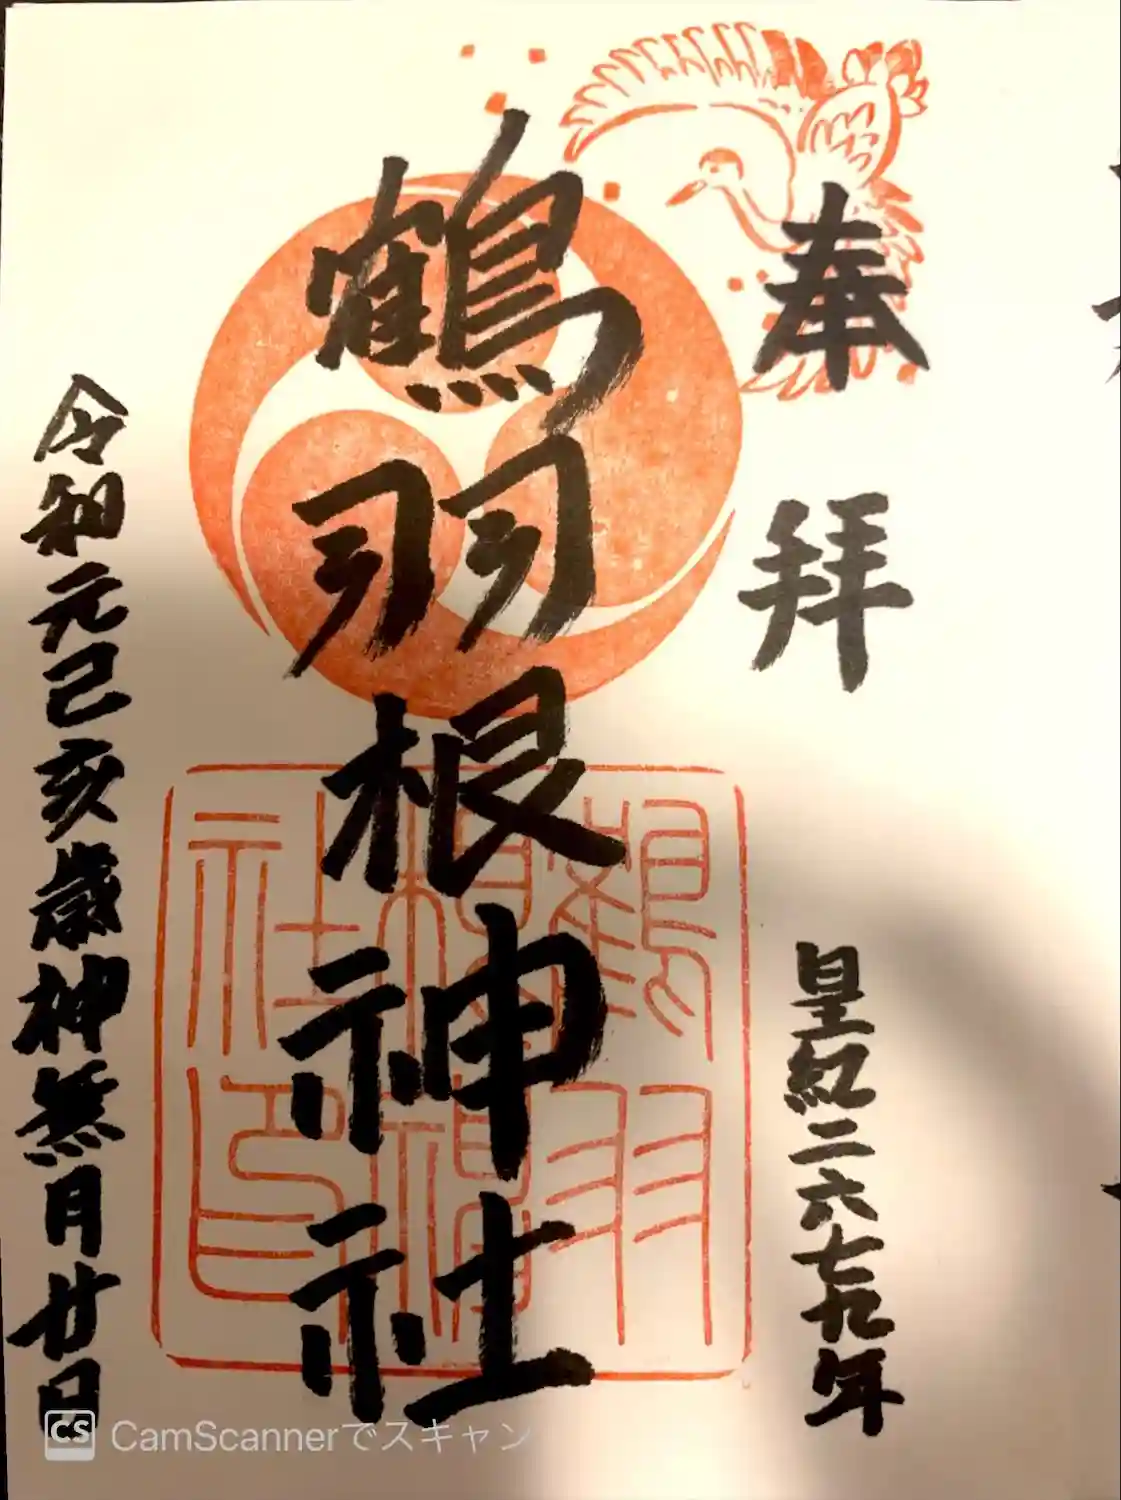 奉拝
皇紀二六七九年
鶴羽根神社
鶴羽根神社印
令和元己亥歳神無月廿日
CS CamScannerでスキャン